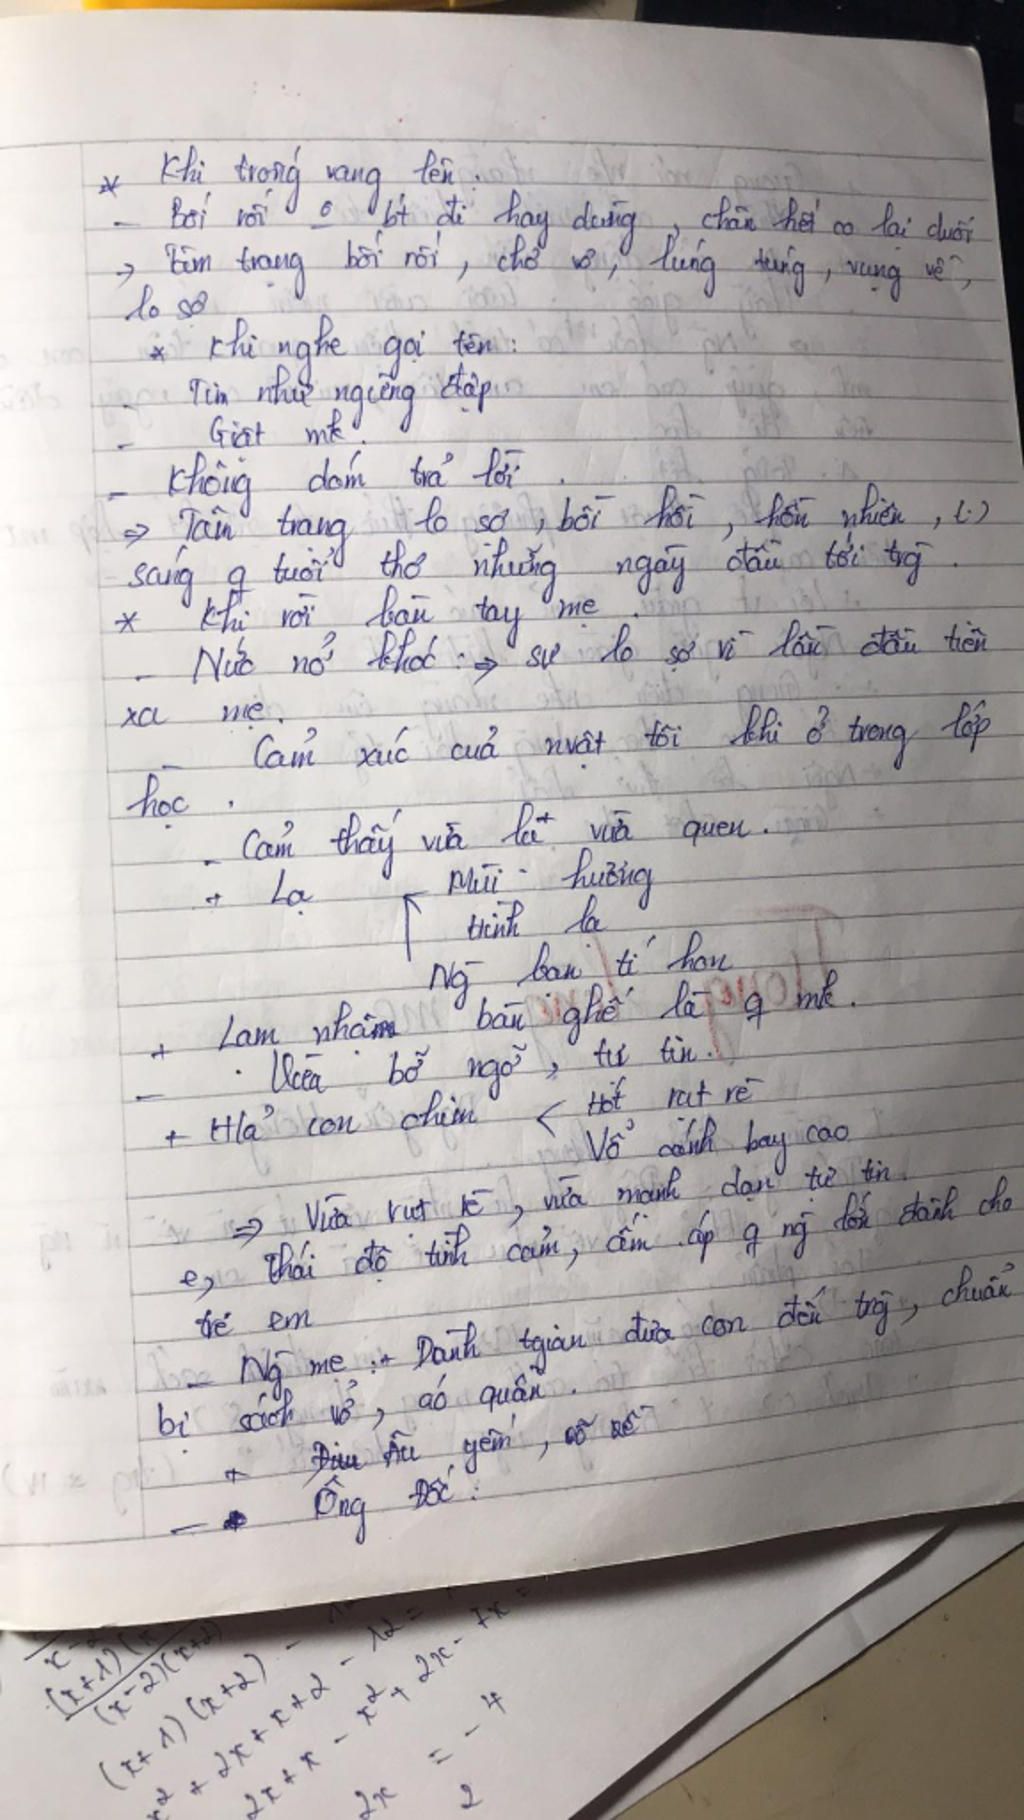 * Khi trống vang lên.
- Bối rối o bt đi hay dừng, chân hết co lại duỗi
→ Tâm trạng bối rối, chơ vơ, lúng túng, vụng về,
lo sợ
* Khi nghe gọi tên:
- Tim như ngừng đập
- Giật mk.
- Không dám trả lời.
⇒ Tâm trạng lo sợ, bồi hồi, hồn nhiên, (.)
sáng q tuổi thơ những ngày đầu tới trg.
* Khi rời bàn tay mẹ.
- Nức nở khóc: ⇒ sự lo sợ vì lần đầu tiên
xa mẹ.
- Cảm xúc của nvật tôi khi ở trong lớp
học.
- Cảm thấy vừa lạ vừa quen.
+ Lạ Mùi hương
hình lạ
Ng bạn tí hon
+ Lạm nhận bàn ghế là q mk.
- Vừa bỡ ngỡ, tự tin.
+ H/ả con chim < Hót rụt rè
Vỗ cánh bay cao
⇒ Vừa rụt rè, vừa mạnh dạn tự tin.
e, Thái độ tình cảm, ấm áp q ng lớn dành cho
trẻ em
- Ng mẹ: + Dành tgian đưa con đến trg, chuẩn
bị sách vở, áo quần.
+ Âu yếm, vỗ về
- Ông Đốc:
(x+1)(x
(x-2)(x+2)
(x+1)(x+2) - 12
x² + 2x + x + 2 - 12 =
2x + x - x² + 2x - 7x =
2x = -4
2